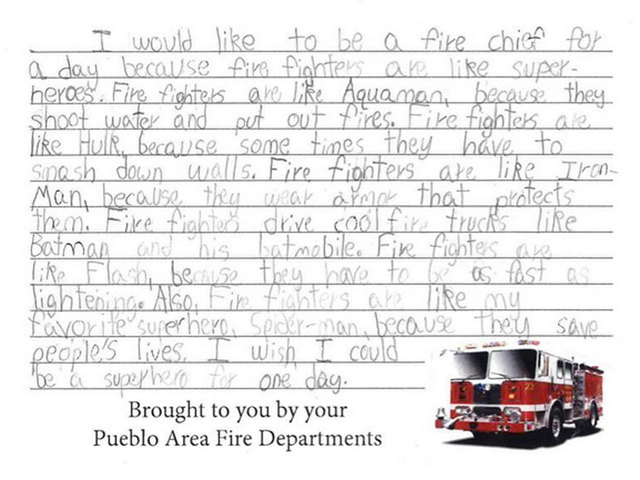 I would like to be a fire chief for
a day because fire fighters are like super-
heroes. Fire fighters are like Aquaman, because they
shoot water and put out fires. Fire fighters are
like Hulk, because some times they have to
smash down walls. Fire fighters are like Iron-
Man, because they wear armor that protects
them. Fire fighters drive cool fire trucks like
Batman and his batmobile. Fire fighters are
like Flash, because they have to be as fast as
lightening. Also, Fire fighters are like my
favorite superhero, Spider-man, because they save
people's lives. I wish I could
be a superhero for one day.
Brought to you by your
Pueblo Area Fire Departments
23